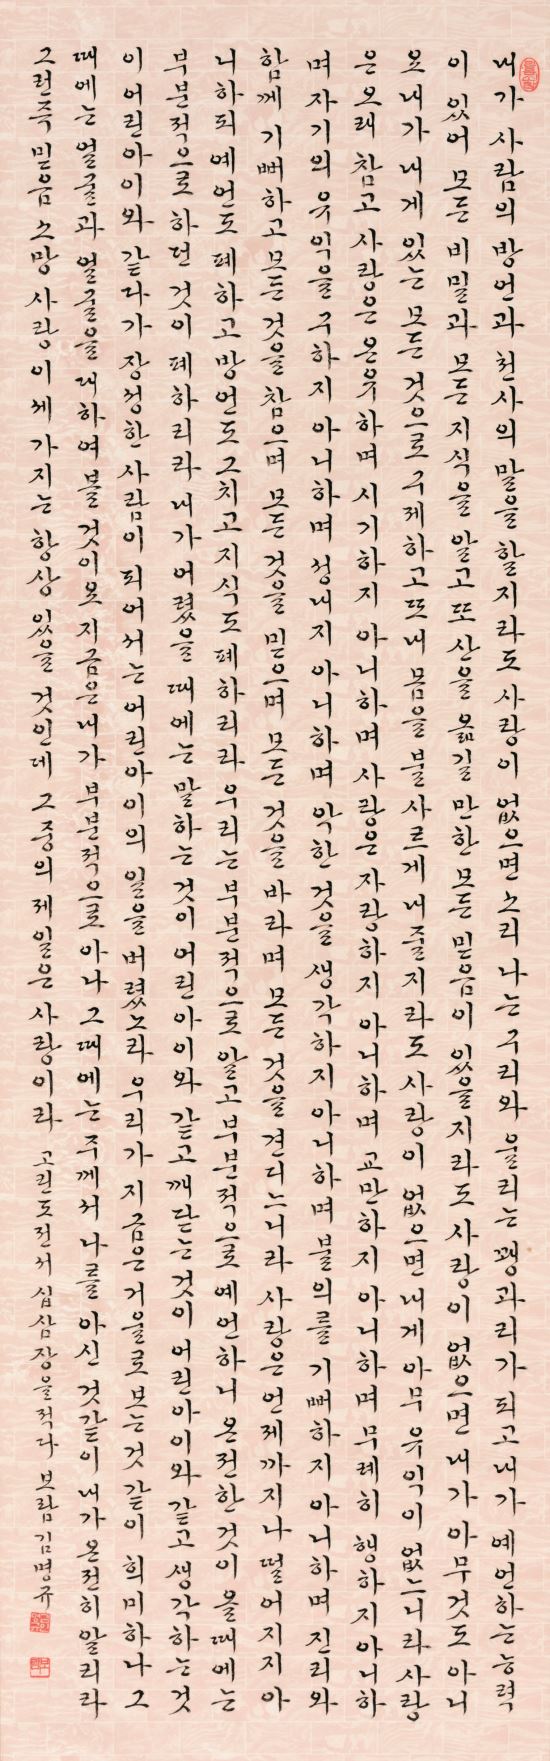 내가 사람의 방언과 천사의 말을 할지라도 사랑이 없으면 소리 나는 구리와 울리는 꽹과리가 되고 내가 예언하는 능력
이 있어 모든 비밀과 모든 지식을 알고 또 산을 옮길 만한 모든 믿음이 있을지라도 사랑이 없으면 내가 아무것도 아니
요 내가 내게 있는 모든 것으로 구제하고 또 내 몸을 불사르게 내줄지라도 사랑이 없으면 내게 아무 유익이 없느니라 사랑
은 오래 참고 사랑은 온유하며 시기하지 아니하며 사랑은 자랑하지 아니하며 교만하지 아니하며 무례히 행하지 아니하
며 자기의 유익을 구하지 아니하며 성내지 아니하며 악한 것을 생각하지 아니하며 불의를 기뻐하지 아니하며 진리와
함께 기뻐하고 모든 것을 참으며 모든 것을 믿으며 모든 것을 바라며 모든 것을 견디느니라 사랑은 언제까지나 떨어지지 아
니하되 예언도 폐하고 방언도 그치고 지식도 폐하리라 우리는 부분적으로 알고 부분적으로 예언하니 온전한 것이 올 때에는
부분적으로 하던 것이 폐하리라 내가 어렸을 때에는 말하는 것이 어린아이와 같고 깨닫는 것이 어린아이와 같고 생각하는 것
이 어린아이와 같다가 장성한 사람이 되어서는 어린아이의 일을 버렸노라 우리가 지금은 거울로 보는 것 같이 희미하나 그
때에는 얼굴과 얼굴을 대하여 볼 것이오 지금은 내가 부분적으로 아나 그 때에는 주께서 나를 아신 것 같이 내가 온전히 알리라
그런즉 믿음 소망 사랑 이 세 가지는 항상 있을 것인데 그 중의 제일은 사랑이라 고린도전서 십삼장을 적다 보람 김명규